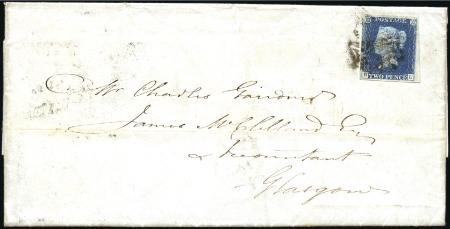 TWO PENCE
Mr Charles Gairdner
James McClelland Esq
Accountant
Glasgow